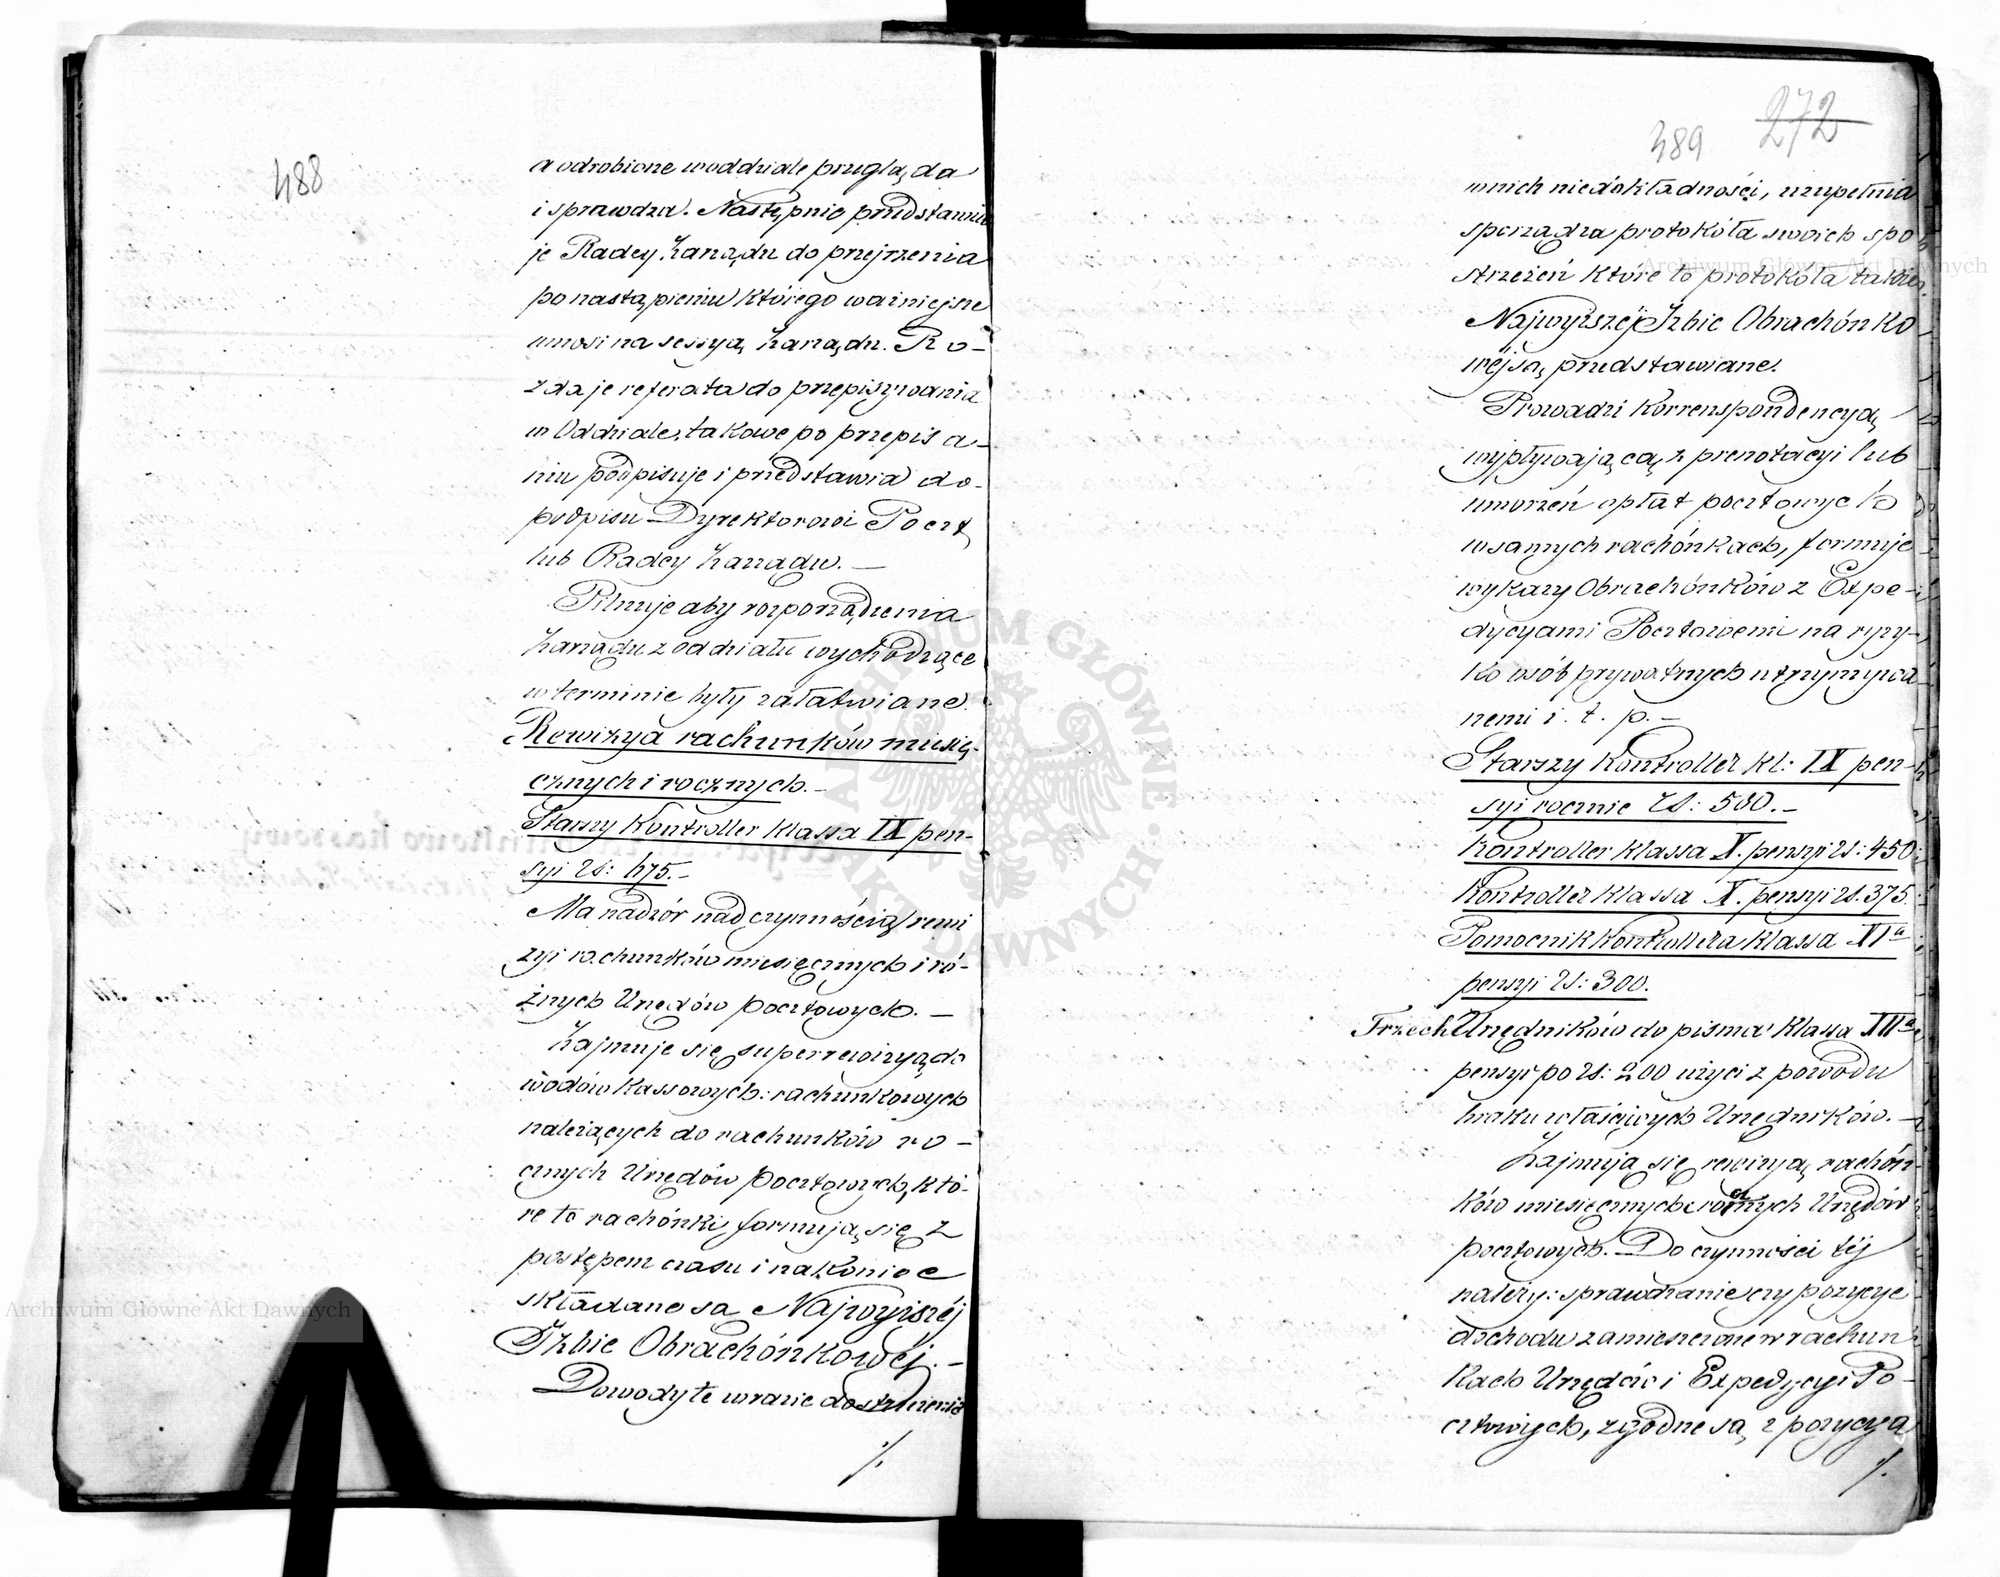 488
a odrobione w oddziale przegląda
i sprawdza. Następnie przedstawia
je Radcy Zarządu do przejrzenia
po nastąpieniu którego ważniejsze
wnosi na sessyą Zarządu. Ro-
zdaje referata do przepisywania
w Oddziale, takowe po przepisa-
niu podpisuje i przedstawia do-
podpisu Dyrektorowi Poczt
lub Radcy Zarządu. —
Pilnuje aby rozporządzenia
Zarządu z oddziału wychodzące
w terminie były załatwiane.
Rewizya rachunków miesię-
cznych i rocznych. —
Starszy Kontroller klassa IX pen-
syi rs: 675. —
Ma nadzór nad czynnością rewi
zyi rachunków miesięcznych i ró-
żnych Urzędów pocztowych. —
Zajmuje się superrewizyą do
wodów kassowych: rachunkowych
należących do rachunków ro-
cznych Urzędów pocztowych, któ-
re to rachónki formują się z
postępem czasu i na koniec
składane są Najwyższéj
Izbie Obrachónkowéj. —
Dowody te w razie dostrzeżenia
./.
272
489
w nich niedokładności, uzupełnia
sporządza protokóła swoich spo
strzeżeń które to protokóła także
Najwyższéj Izbie Obrachónko
wéj są przedstawiane.
Prowadzi korrenspondencyą
wypływającą z prenotacyi lub
umorzeń opłat pocztowych
w samych rachónkach, formuje
wykazy Obrachónków z Expe-
dycyami Pocztowemi na ryzy-
ko osób prywatnych utrzymywa
nemi i. t. p. —
Starszy Kontroller kl: IX pen-
syi rocznie rs: 580. —
Kontroller klassa X. pensyi rs: 450.
Kontroller klassa X. pensyi rs. 375.
Pomocnik Kontrollera klassa XIa
pensyi rs: 300.
Trzech Urzędników do pisma klassa XIIa
pensyi po rs: 200 użyci z powodu
braku właściwych Urzędników. —
Zajmują się rewizyą rachón-
ków miesięcznych i rocznych Urzędów
pocztowych. Do czynności téj
należy: sprawdzanie czy pozycye
dochodu zamieszczone w rachun
kach Urzędów i Expedycyi Po-
cztowych, zgodne są z pozycyą
./.
Archiwum Główne Akt Dawnych
Archiwum Główne Akt Dawnych
ARCHIWUM GŁÓWNE AKT DAWNYCH